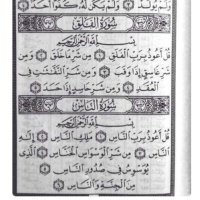 وَلَمْ يُولَدْ ۝٣ وَلَمْ يَكُن لَّهُ كُفُوًا أَحَدٌ ۝٤
سُورَةُ الْفَلَقِ
بِسْمِ اللَّهِ الرَّحْمَٰنِ الرَّحِيمِ
قُلْ أَعُوذُ بِرَبِّ الْفَلَقِ ۝١ مِن شَرِّ مَا خَلَقَ ۝٢ وَمِن
شَرِّ غَاسِقٍ إِذَا وَقَبَ ۝٣ وَمِن شَرِّ النَّفَّاثَاتِ فِي
الْعُقَدِ ۝٤ وَمِن شَرِّ حَاسِدٍ إِذَا حَسَدَ ۝٥
سُورَةُ النَّاسِ
بِسْمِ اللَّهِ الرَّحْمَٰنِ الرَّحِيمِ
قُلْ أَعُوذُ بِرَبِّ النَّاسِ ۝١ مَلِكِ النَّاسِ ۝٢ إِلَٰهِ
النَّاسِ ۝٣ مِن شَرِّ الْوَسْوَاسِ الْخَنَّاسِ ۝٤ الَّذِي
يُوَسْوِسُ فِي صُدُورِ النَّاسِ ۝٥
مِنَ الْجِنَّةِ وَالنَّاسِ ۝٦